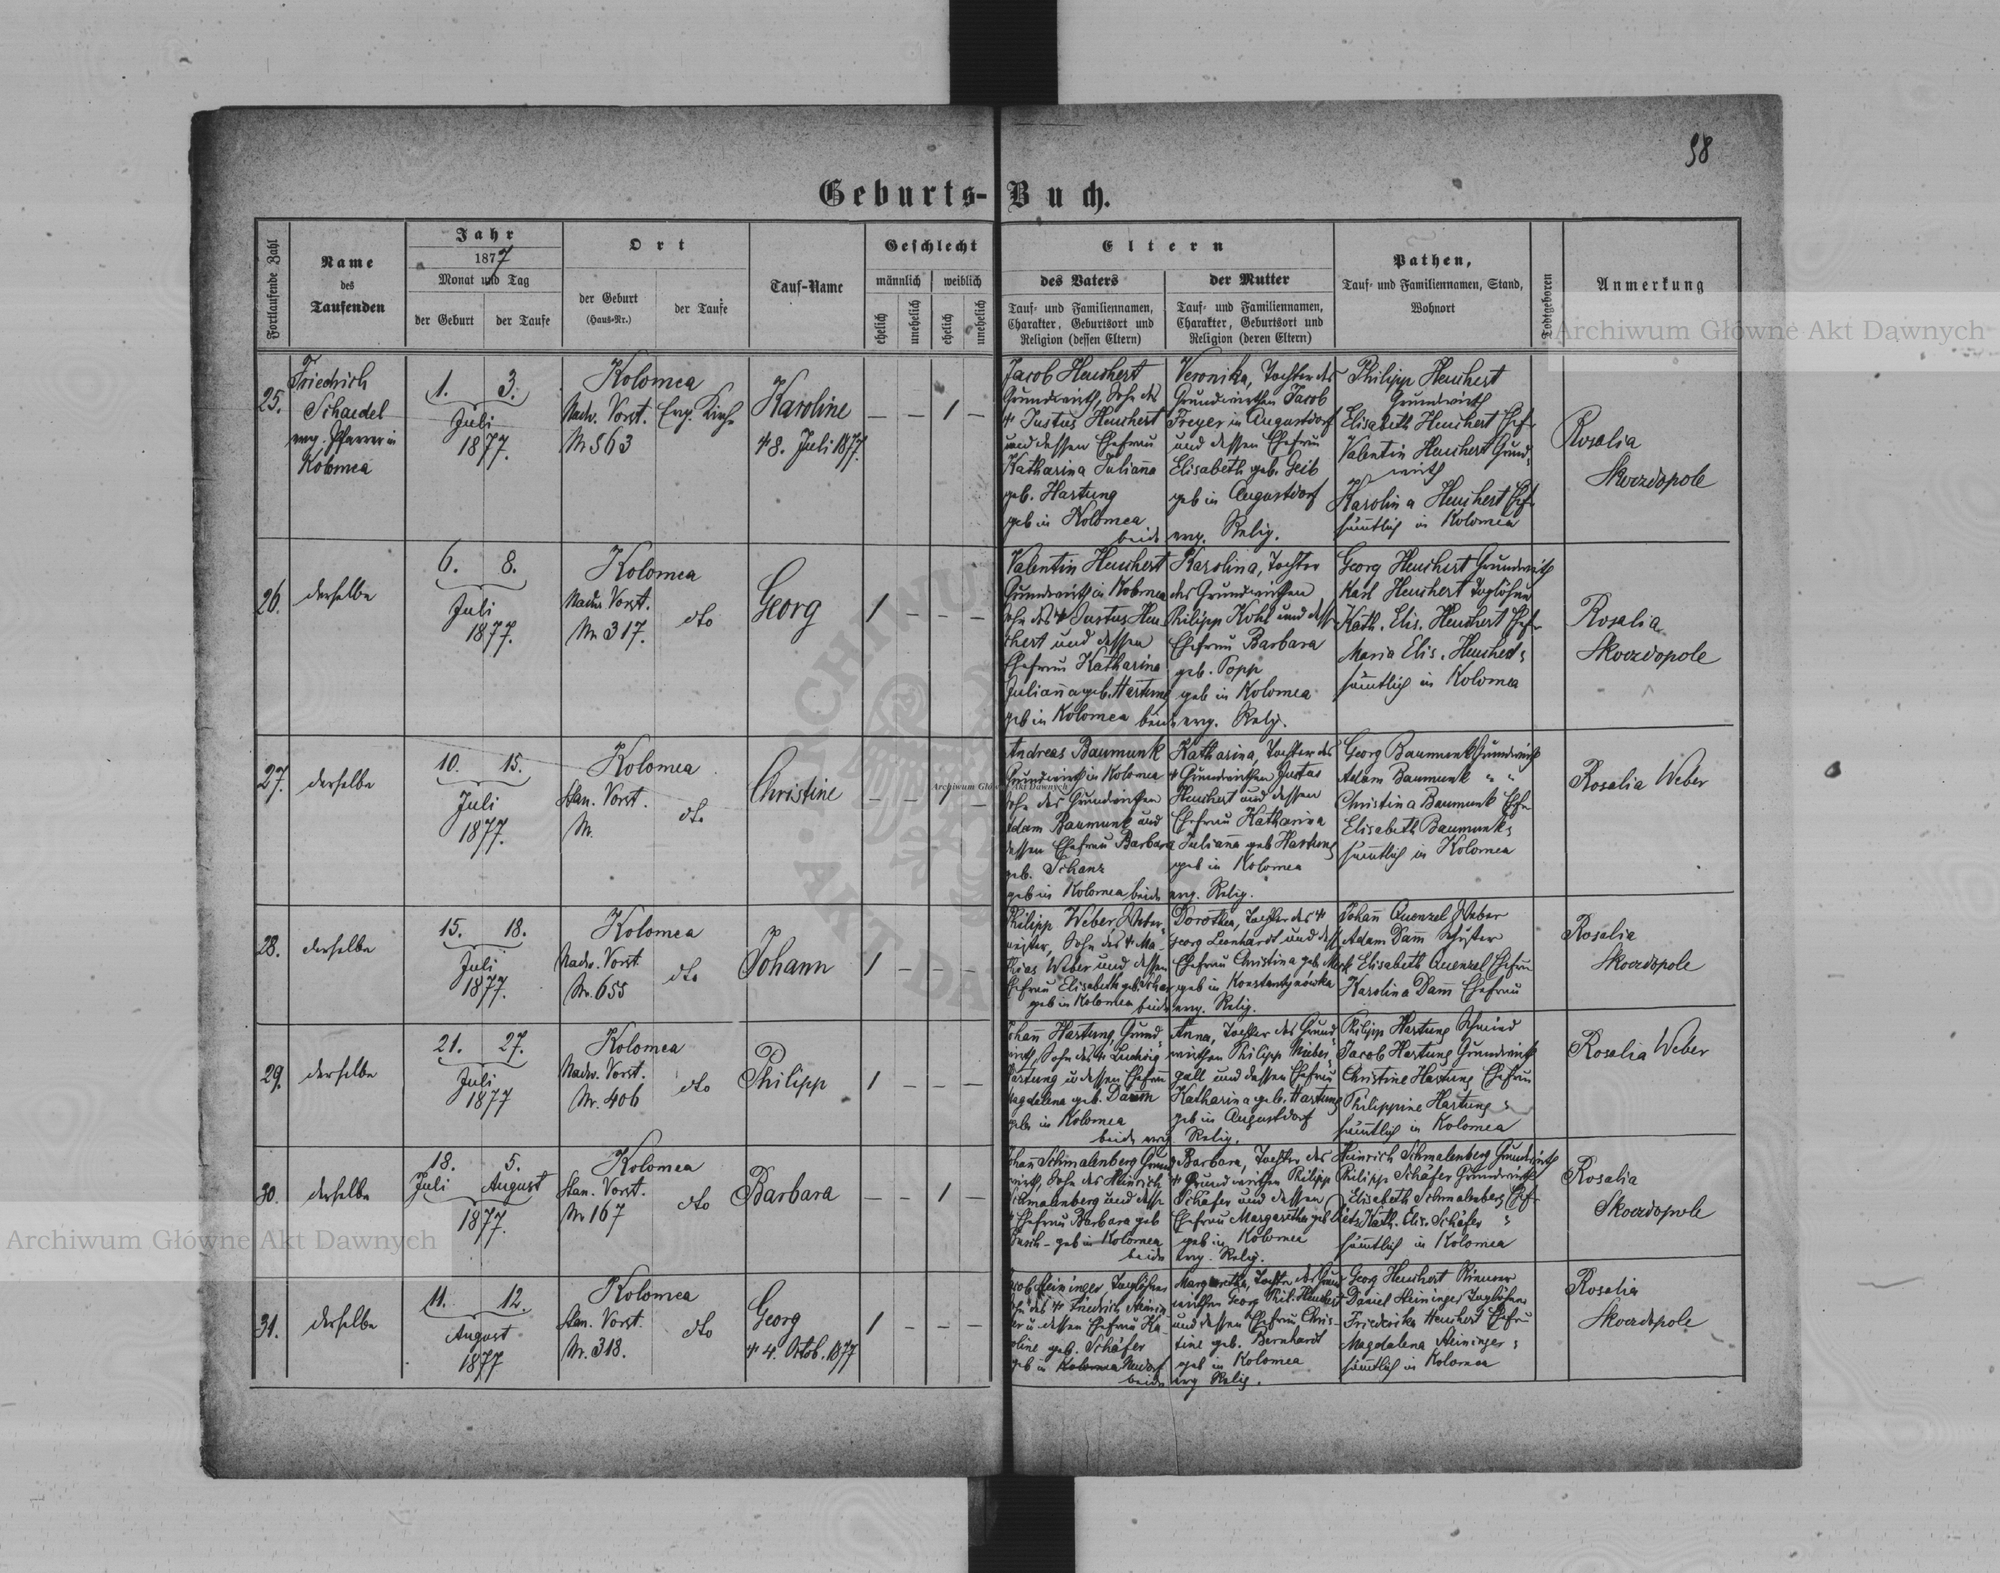 98
Geburts-Buch.
Fortlaufende Zahl
Name
des
Taufenden
Jahr
1877
Monat und Tag
der Geburt
der Taufe
Ort
der Geburt
(Haus-Nr.)
der Taufe
Tauf-Name
Geschlecht
männlich
weiblich
ehelich
unehelich
ehelich
unehelich
Eltern
des Vaters
Tauf- und Familiennamen,
Charakter, Geburtsort und
Religion (dessen Eltern)
der Mutter
Tauf- und Familiennamen,
Charakter, Geburtsort und
Religion (deren Eltern)
Pathen,
Tauf- und Familiennamen, Stand,
Wohnort
Todtgeboren
Anmerkung
25.
Friedrich
Schaedel
evg. Pfarrer in
Kolomea
1. 3.
Juli
1877.
Kolomea
Nadw. Vorst.
Nr 563
Evg. Kirche
Karoline
+ 8. Juli 1877.
— — 1 —
Jacob Heuchert
Grundwirth, Sohn des
+ Justus Heuchert
und dessen Ehefrau
Katharina Julianna
geb. Hartung
geb in Kolomea
beide
Veronika, Tochter des
Grundwirthen Jacob
Freyer in Augustdorf
und dessen Ehefrau
Elisabeth geb. Geib
geb in Augustdorf
evg. Relig.
Philipp Heuchert
Grundwirth
Elisabeth Heuchert Ehef
Valentin Heuchert Grund-
wirth
Karolina Heuchert Ehef
sämtlich in Kolomea
Rosalia
Skoczdopole
26.
derselbe
6. 8.
Juli
1877.
Kolomea
Nadw Vorst.
Nr 317.
dto
Georg
1 — — —
Valentin Heuchert
Grundwirth in Kolomea
Sohn des + Justus Heu-
chert und dessen
Ehefrau Katharina
Julianna geb. Hartung
geb in Kolomea beide
Karolina, Tochter
des Grundwirthen
Philipp Kohl und dess
Ehefrau Barbara
geb. Popp
geb in Kolomea
evg. Relg.
Georg Heuchert Grundwirth
Karl Heuchert Taglöhner
Kath. Elis. Heuchert Ehef
Maria Elis. Heuchert "
sämtlich in Kolomea
Rosalia
Skoczdopole
27.
derselbe
10. 15.
Juli
1877.
Kolomea
Stan. Vorst.
Nr.
dto
Christine
— — 1 —
Andreas Baumunk
Grundwirth in Kolomea
Sohn des Grundwirthen
Adam Baumunk und
dessen Ehefrau Barbara
geb. Schanz
geb in Kolomea beide
Katharina, Tochter des
+ Grundwirthen Justus
Heuchert und dessen
Ehefrau Katharina
Julianna geb Hartung
geb in Kolomea
evg. Relig.
Georg Baumunk Grundwirth
Adam Baumunk " "
Christina Baumunk Ehe
Elisabeth Baumunk "
sämtlich in Kolomea
Rosalia Weber
28.
derselbe
15. 18.
Juli
1877.
Kolomea
Nadw. Vorst
Nr. 655
dto
Johann
1 — — —
Philipp Weber, Weber-
meister, Sohn des + Ma-
thias Weber und dessen
Ehefrau Elisabeth geb. Schar
geb in Kolomea beide
Dorothea, Tochter des +
Georg Leonhardt und dess
Ehefrau Christina geb Mark
geb in Konstantynówka
evg. Relig.
Johann Quenzel Weber
Adam Damm Schuster
Elisabeth Quenzel Ehefrau
Karolina Damm Ehefrau
Rosalia
Skoczdopole
29.
derselbe
21. 27.
Juli
1877
Kolomea
Nadw. Vorst.
Nr. 406
dto
Philipp
1 — — —
Johann Hartung, Grund-
wirth, Sohn des + Ludwig
Hartung u dessen Ehefrau
Magdalena geb. Damm
geb in Kolomea
beide evg
Anna, Tochter des Grund-
wirthen Philipp Nieber-
gall und dessen Ehefrau
Katharina geb. Hartung
geb in Augustdorf
Relig.
Philipp Hartung Schmied
Jacob Hartung Grundwirth
Christine Hartung Ehefrau
Philippine Hartung "
sämtlich in Kolomea
Rosalia Weber
30.
derselbe
18. 5.
Juli August
1877.
Kolomea
Stan. Vorst.
Nr 167
dto
Barbara
— — 1 —
Johann Schmalenberg Grund-
wirth, Sohn des Heinrich
Schmalenberg und dess
+ Ehefrau Barbara geb
geb in Kolomea
beide
Barbara, Tochter des
+ Grundwirthen Philipp
Schäfer und dessen
Ehefrau Margaretha geb Dietz
geb in Kolomea
evg. Relig.
Heinrich Schmalenberg Grundwirth
Philipp Schäfer Grundwirth
Elisabeth Schmalenberg Ehef
Kath. Elis. Schäfer "
sämtlich in Kolomea
Rosalia
Skoczdopole
31.
derselbe
11. 12.
August
1877
Kolomea
Stan. Vorst.
Nr. 318.
dto
Georg
+ 4. Octob. 1877
1 — — —
Jacob Heininger Taglöhner
Sohn des + Friedrich Heinin-
ger u dessen Ehefrau Ka-
roline geb. Schäfer
geb in Kolomea Neudorf
beide
Margaretha, Tochter des Grund-
wirthen Georg Phil. Heuchert
und dessen Ehefrau Chris-
tine geb. Bernhardt
geb in Kolomea
evg Relig.
Georg Heuchert Riemer
Daniel Heininger Taglöhner
Friederike Heuchert Ehefrau
Magdalena Heininger "
sämtlich in Kolomea
Rosalia
Skoczdopole
Archiwum Główne Akt Dawnych
Archiwum Główne Akt Dawnych
Archiwum Główne Akt Dawnych